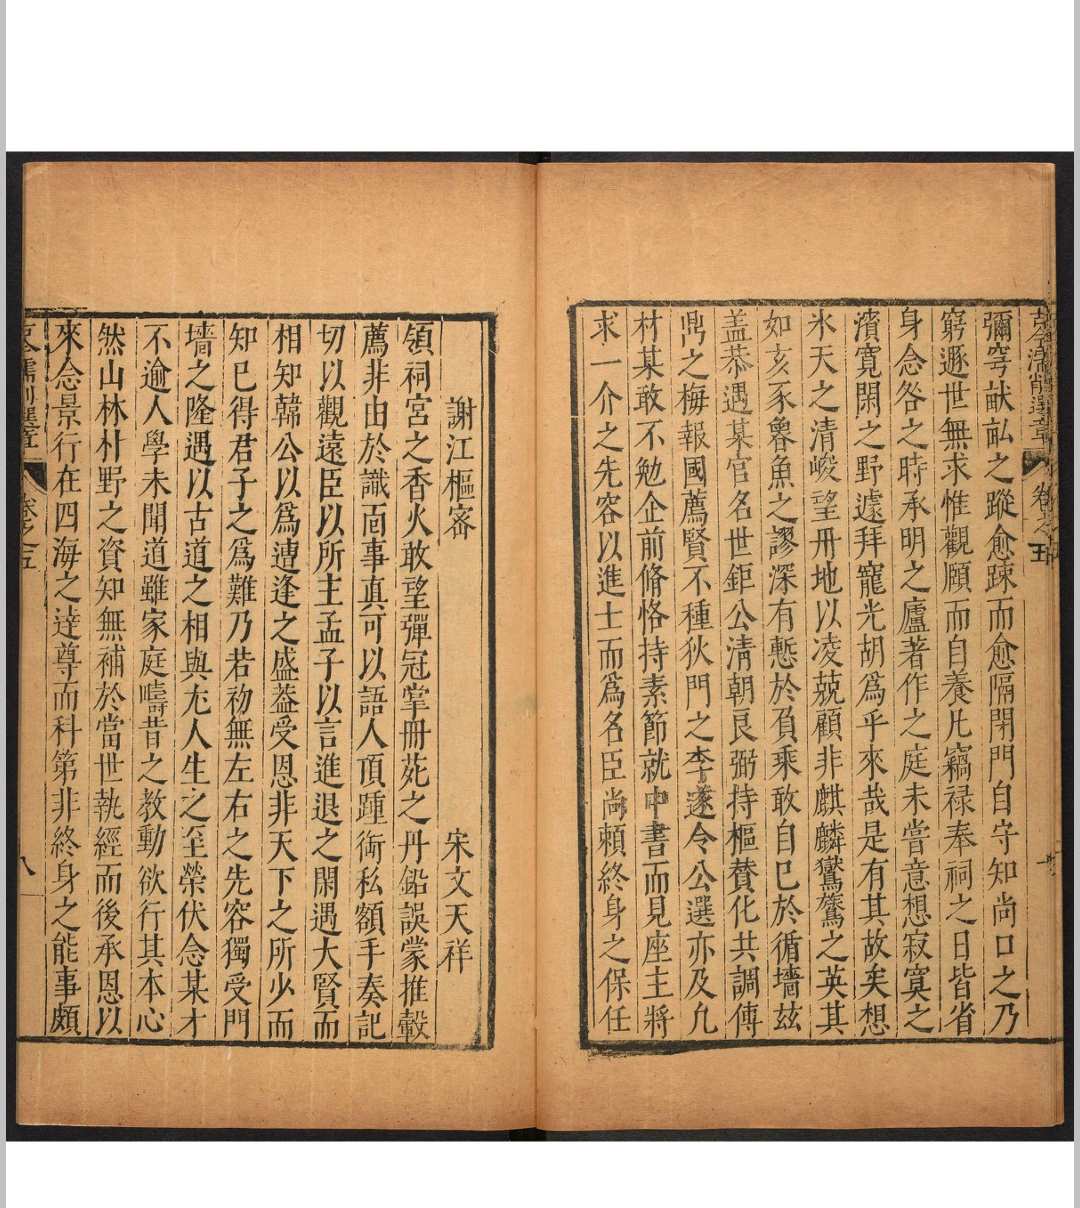 卷之五
彌穹猷畆之蹤愈踈而愈隔閉門自守知尚口之乃
窮遯世無求惟觀頤而自養凡竊禄奉祠之日皆省
身念咎之時承明之廬著作之庭未嘗意想寂寞之
濱寛閑之野遽拜寵光胡爲乎來哉是有其故矣想
氷天之清峻望冊地以凌兢顧非麒麟鸑鷟之英其
如亥豕魯魚之謬深有慙於負乘敢自已於循墻玆
盖恭遇某官名世鉅公清朝良弼持樞賛化共調傅
鼎之梅報國薦賢不種狄門之李遂令公選亦及凢
材某敢不勉企前脩恪持素節就中書而見座主將
求一介之先容以進士而爲名臣尚頼終身之保任
謝江樞宻 宋文天祥
領祠宮之香火敢望彈冠掌冊苑之丹鉛誤蒙推轂
薦非由於識面事真可以語人頂踵銜私額手奏記
切以觀遠臣以所主孟子以言進退之閑遇大賢而
相知韓公以爲遭逢之盛葢受恩非天下之所少而
知已得君子之爲難乃若初無左右之先容獨受門
墻之隆遇以古道之相與尤人生之至榮伏念某才
不逾人學未聞道雖家庭疇昔之教動欲行其本心
然山林朴野之資知無補於當世執經而後承恩以
來念景行在四海之逹尊而科第非終身之能事頗
卷之五 八